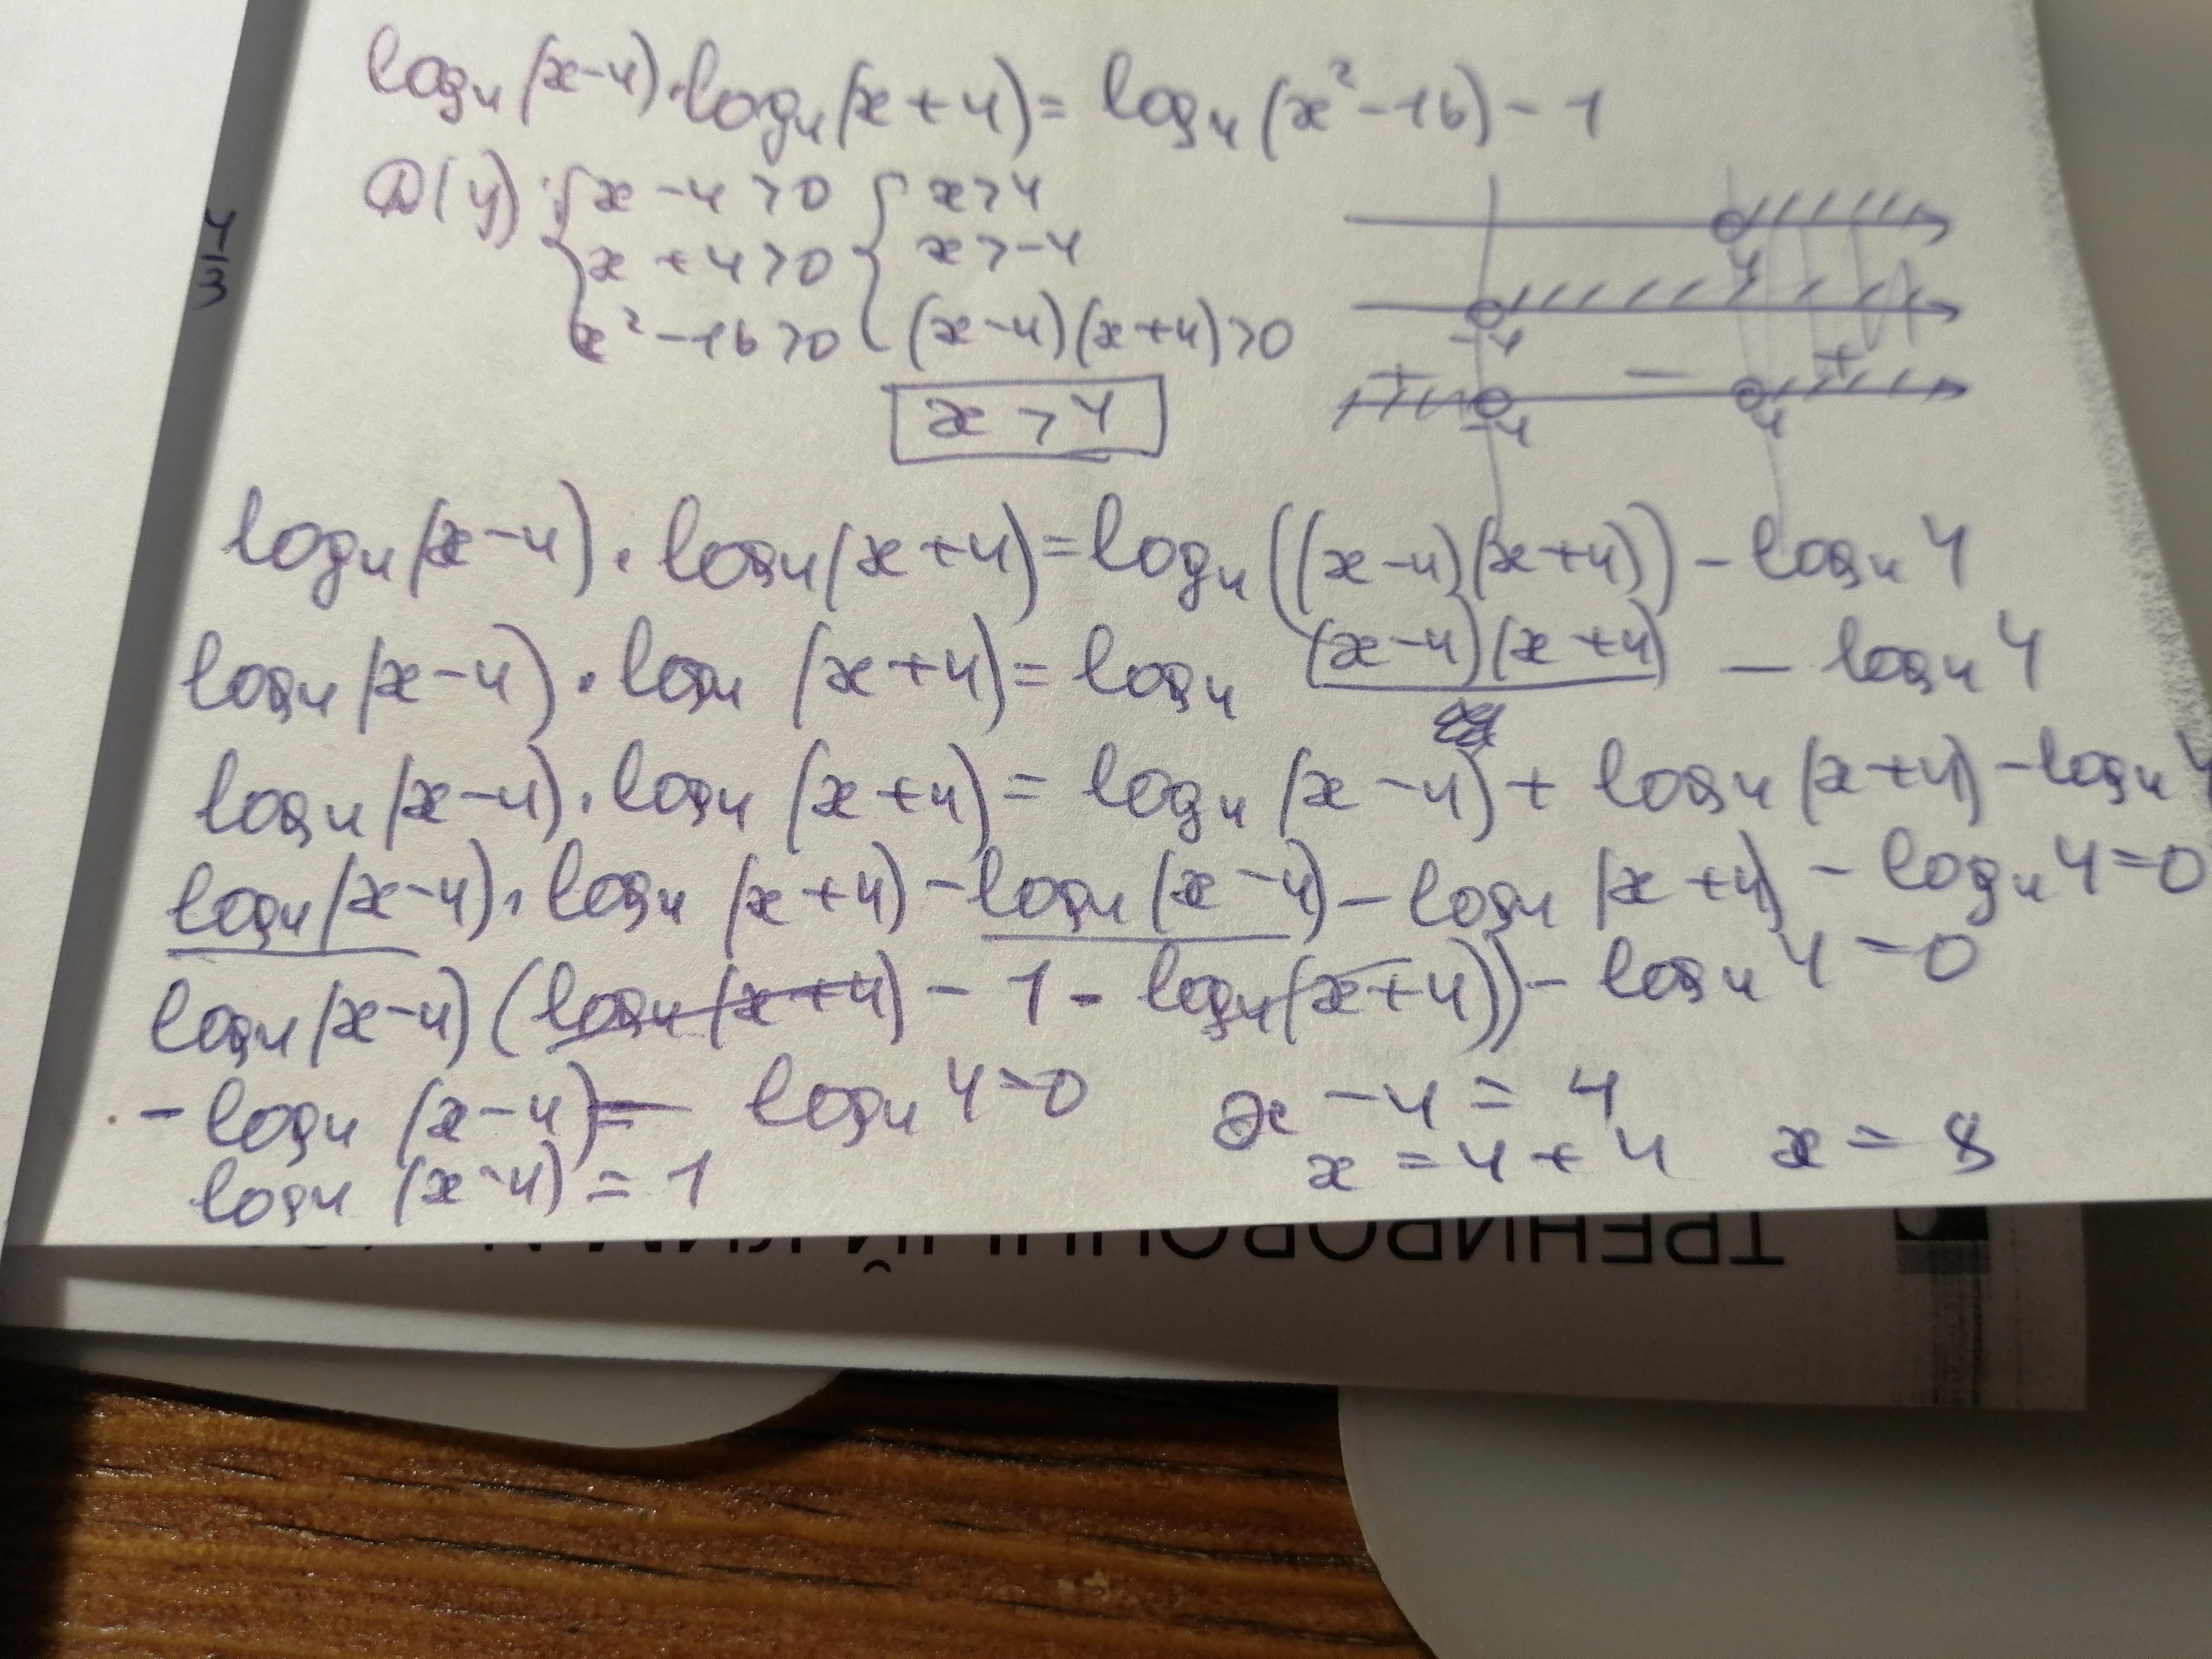 log₄(x-4)·log₄(x+4) = log₄(x²-16) - 1
D(y): { x-4>0 { x>4
x+4>0 x>-4
x²-16>0 (x-4)(x+4)>0
x > 4
4
-4
+ - +
-4 4
4/3
log₄(x-4)·log₄(x+4) = log₄((x-4)(x+4)) - log₄4
log₄(x-4)·log₄(x+4) = log₄ (x-4)(x+4) - log₄4
log₄(x-4)·log₄(x+4) = log₄(x-4) + log₄(x+4) - log₄4
log₄(x-4)·log₄(x+4) - log₄(x-4) - log₄(x+4) - log₄4=0
log₄(x-4)(log₄(x+4) - 1 - log₄(x+4)) - log₄4=0
-log₄(x-4) = log₄4=0 x-4=4
log₄(x-4)=1 x=4+4 x=8
ТРЕНИРОВОЧНЫЙ КИМ